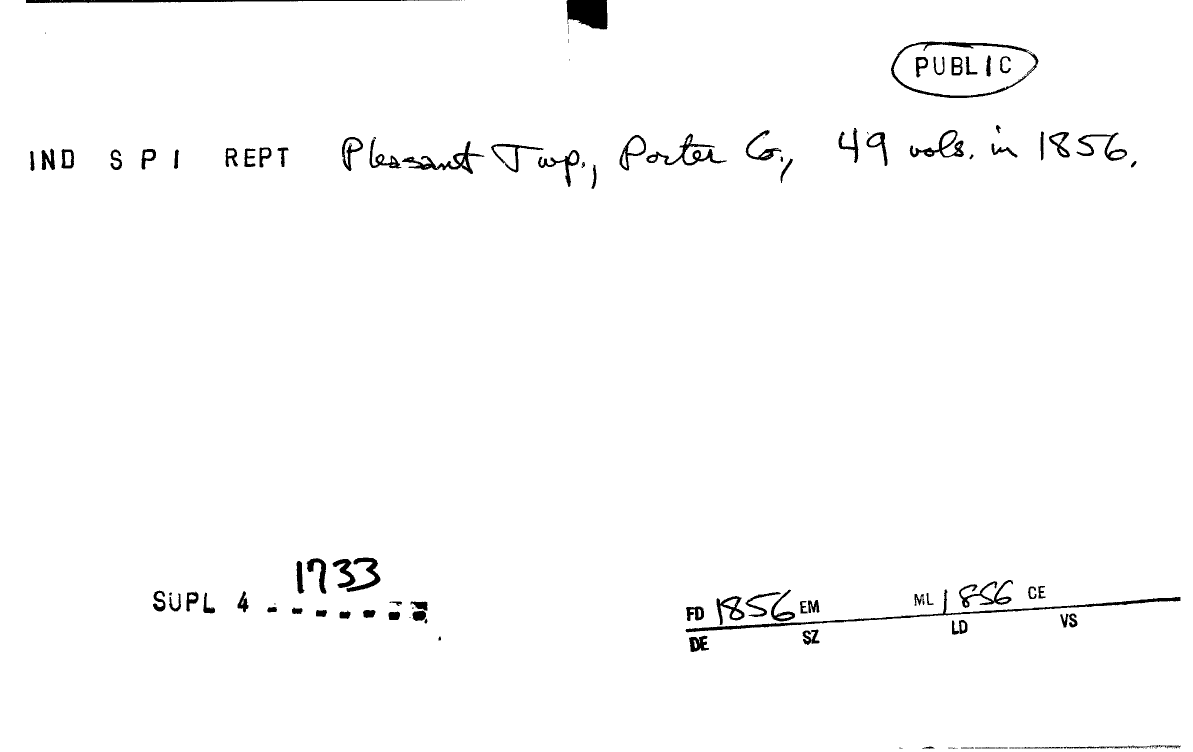 PUBLIC
IND S P I REPT Pleasant Twp., Porter Co., 49 vols. in 1856.
1733
SUPL 4
FD 1856 EM ML 1856 CE
DE SZ LD VS